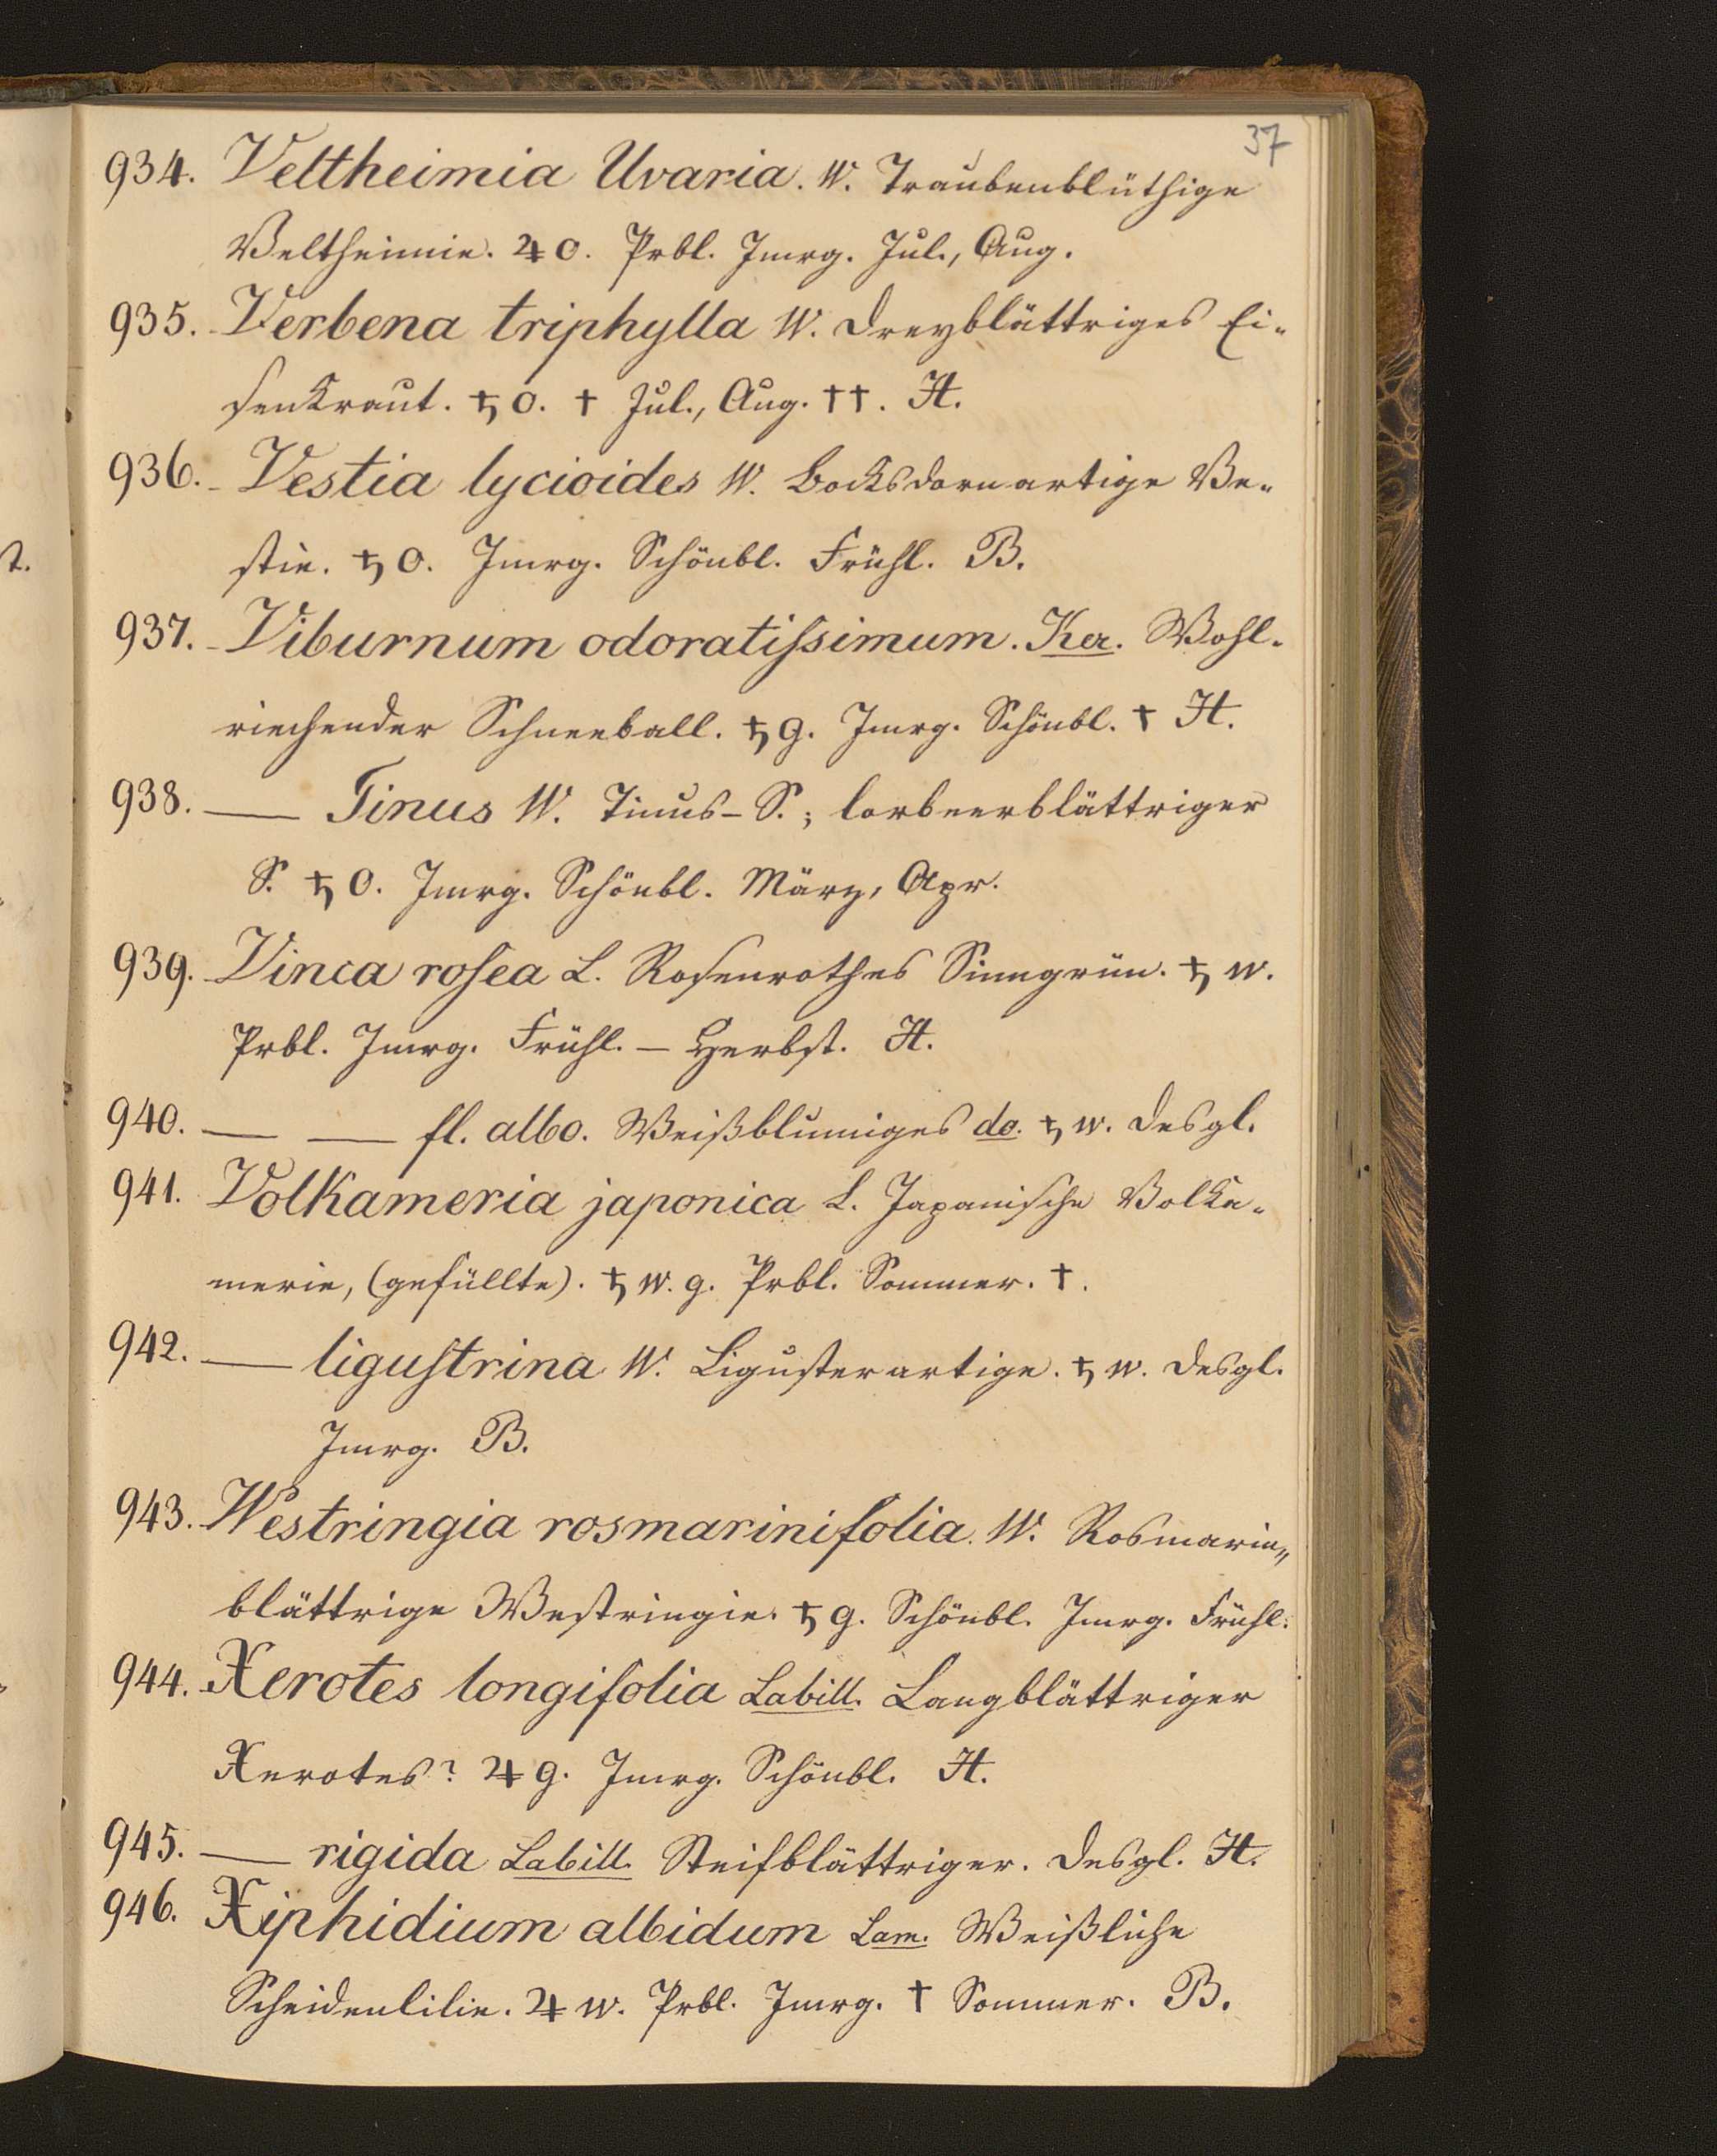 37
934. Veltheimia Uvaria. W. Traubenblüthige
Veltheimie. ♃ o. Prbl. Jmrg. Jul., Aug.
935. Verbena triphylla W. Dreyblättriges Ei-
senkraut. ♄ o. † Jul., Aug. ††. H.
936. Vestia lycioides W. Bocksdornartige Ve-
stie. ♄ o. Jmrg. Schönbl. Frühl. B.
937. Viburnum odoratiſsimum. Ker. Wohl-
riechender Schneeball. ♄ g. Jmrg. Schönbl. † H.
938. — Tinus W. Tinus-S.; lorbeerblättriger
S. ♄ o. Jmrg. Schönbl. März, Apr.
939. Vinca roſea L. Rosenrothes Sinngrün. ♄ w.
Prbl. Jmrg. Frühl. – Herbst. H.
940. — — fl. albo. Weißblumiges do. ♄ w. desgl.
941. Volkameria japonica L. Japanische Volka-
merie, (gefüllte). ♄ w. g. Prbl. Sommer. †.
942. — liguſtrina W. Ligusterartige. ♄ w. desgl.
Jmrg. B.
943. Westringia rosmarinifolia. W. Rosmarin-
blättrige Westringie. ♄ g. Schönbl. Jmrg. Frühl.
944. Xerotes longifolia Labill. Langblättriger
Xerotes? ♃ g. Jmrg. Schönbl. H.
945. — rigida Labill. Steifblättriger. desgl. H.
946. Xiphidium albidum Lam. Weißliche
Scheidenlilie. ♃ w. Prbl. Jmrg. † Sommer. B.